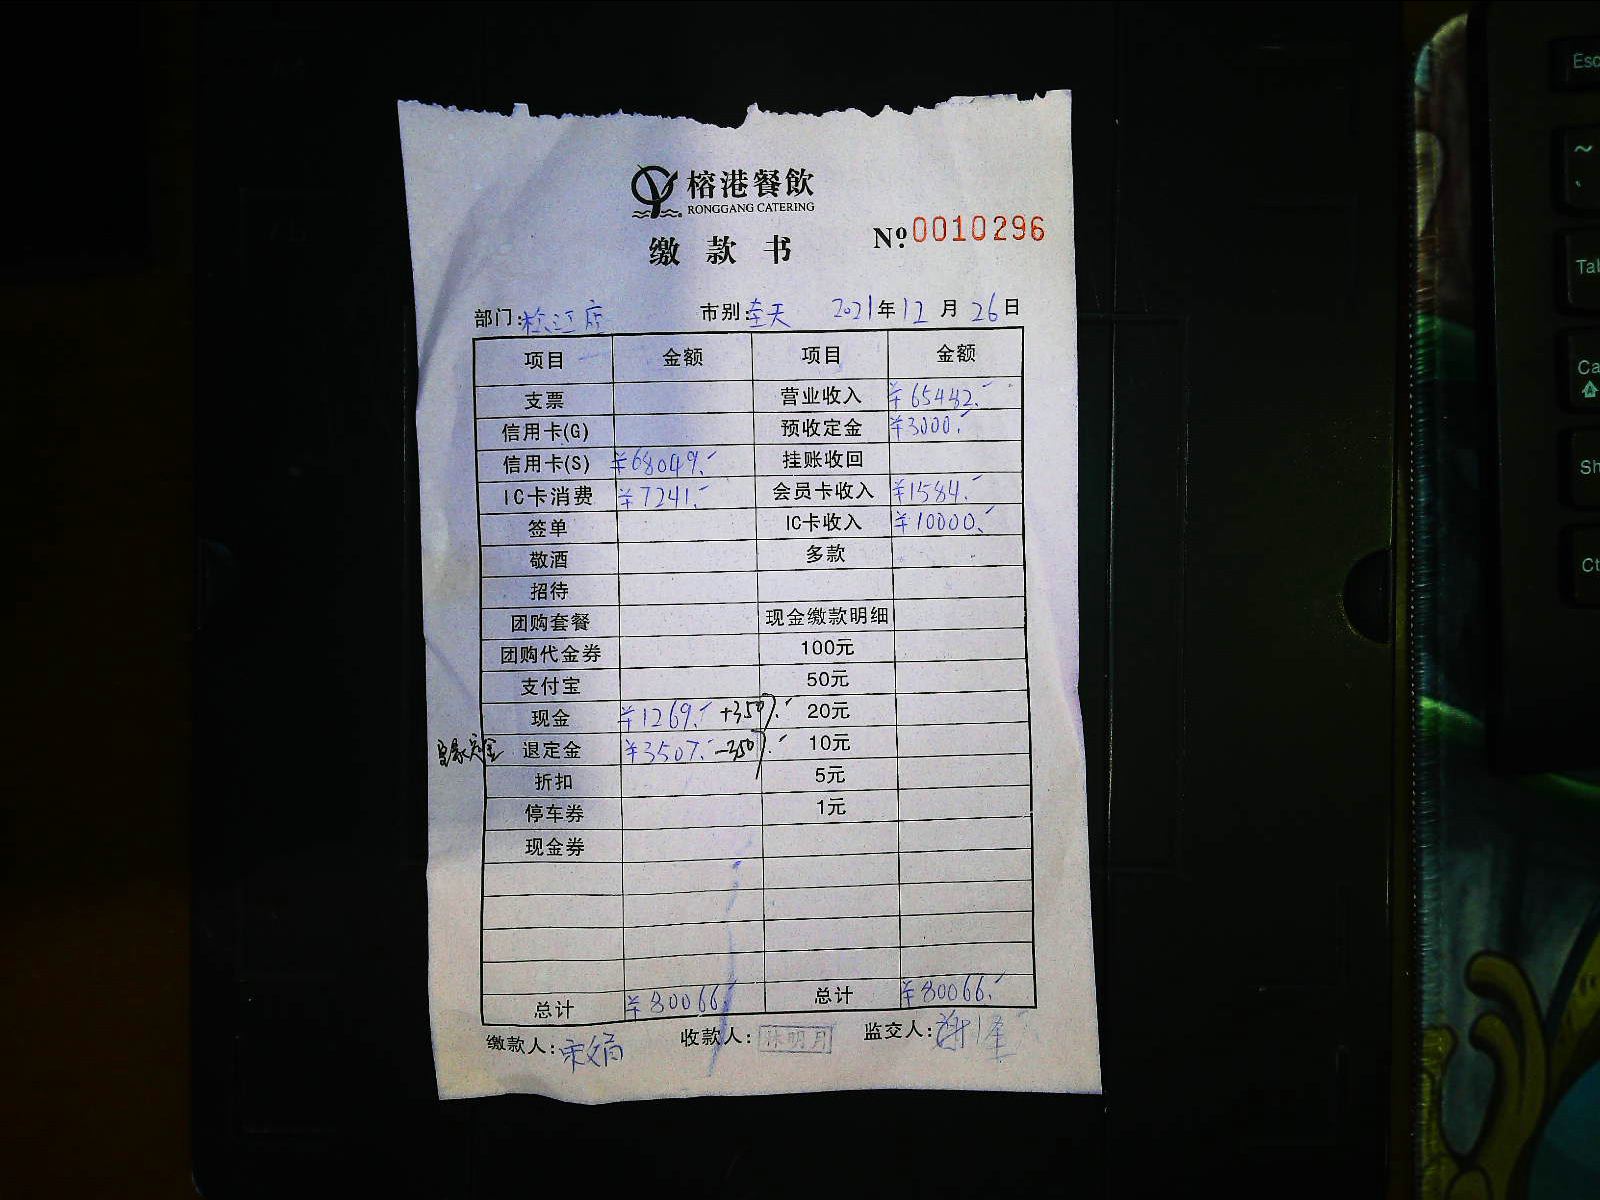 榕港餐飲
RONGGANG CATERING
缴款书
№ 0010296
部门:松江店 市别:全天 2021年12月26日
项目 金额 项目 金额
支票 营业收入 ¥65482.-
信用卡(G) 预收定金 ¥3000.-
信用卡(S) ¥68049.- 挂账收回
IC卡消费 ¥7241.- 会员卡收入 ¥1584.-
签单 IC卡收入 ¥10000.-
敬酒 多款
招待
团购套餐 现金缴款明细
团购代金券 100元
支付宝 50元
现金 ¥1269.- +3507.- 20元
退定金 ¥3507.- -3507.- 10元
折扣 5元
停车券 1元
现金券
总计 ¥80066.- 总计 ¥80066.-
缴款人: 收款人: 监交人:
Esc
~
Tab
Ca
Sh
Ct